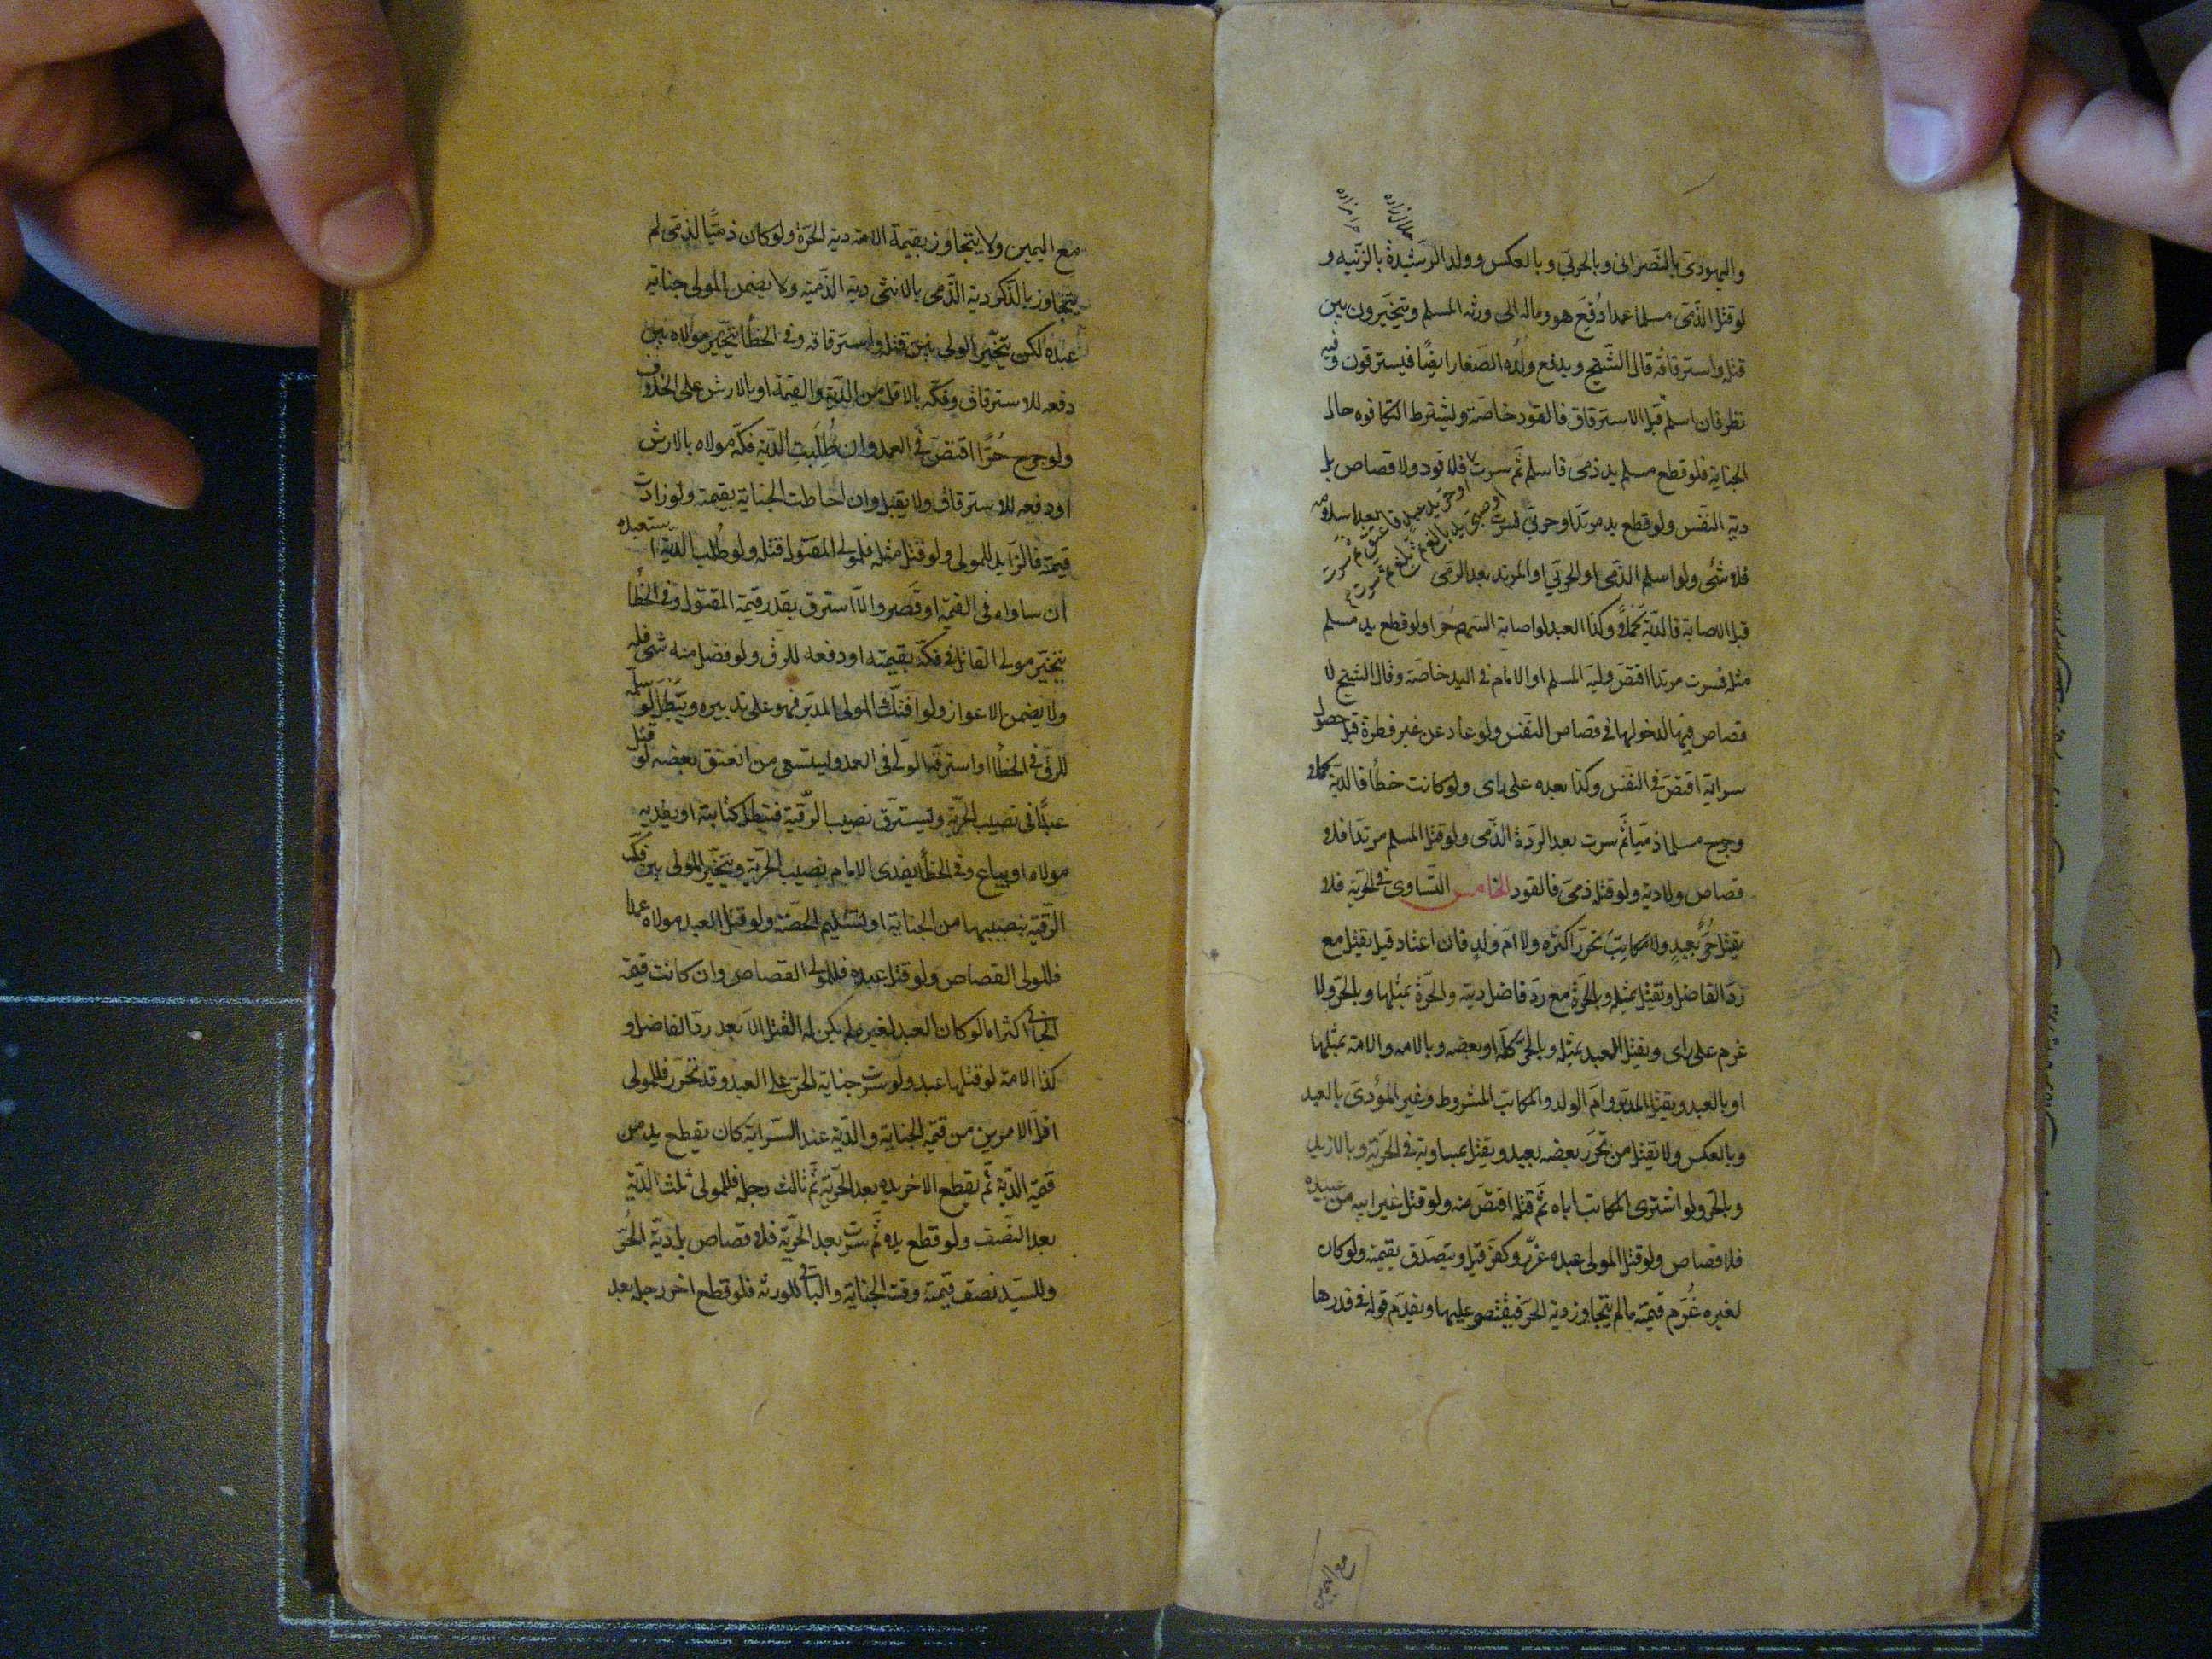 حلال زاده
حرامزاده
واليهودى بالنصرانى وبالحربي وبالعكس وولد الرشيدة بالزنيه و
لو قتل الذمى مسلما عمدا دُفِعَ هو وماله الى ورثه المسلم ويتخيرون بين
قتله واسترقاقه قال الشيخ ويدفع ولده الصغار ايضًا فيسترقون وفيه
نظر فان اسلم قبل الاسترقاق فالقود خاصة ويشترط التكافوه حال
الجناية فلو قطع مسلم يد ذمى فاسلم ثم سرت فلا قود ولا قصاص بل
او حرّ يد عبد فاعتق ثم سرت
او صبىّ يد بالغ ثم بلغ ثم سرت
دية النفس ولو قطع يد مرتد او حربى فسرت بعد اسلامه
فلا شئ ولو اسلم الذمى او الحربي او المرتد بعد الرمى
قبل الاصابة فالدية كملا وكذا العبد لو اصابه السهم حُرا ولو قطع يد مسلم
مثله فسرت مرتدا اقتصّ وليه المسلم او الامام فى اليد خاصة وقال الشيخ لا
قصاص فيها لدخولها فى قصاص النفس ولو عاد عن غير فطرة قبل حصول
سراية اقتصّ فى النفس وكذا بعده على راى ولو كانت خطأ فالدية كملا
وجرح مسلما ذميا ثم سرت بعد الردة الذمى ولو قتل المسلم مرتدا فلا
قصاص ولا دية ولو قتله ذمى فالقود الخامس التساوى فى الحرية فلا
يقتل حرٌّ بعبدٍ ولا مكاتبٍ تحرر اكثره ولا ام ولدٍ فان اعتاد قيل يقتل مع
ردّ الفاضل ويقتل بمثله وبالحرة مع ردّ فاضل ديته والحرة بمثلها وبالحر ولا
غرم على راى ويقتل العبد بمثله وبالحر كله او بعضه وبالامه والامة بمثلها
او بالعبد ويقتل المدبر وام الولد والمكاتب المشروط وغير المؤدى بالعبد
وبالعكس ولا يقتل من تحرر بعضه بعبد ويقتل بمساويه فى الحرية وبالازيد
وبالحر ولو اشترى المكاتب اباه ثم قتله اقتص منه ولو قتل غير ابيه من عبيده
فلا قصاص ولو قتل المولى عبده عُزّر وكفّر قيل ويتصدق بقيمته ولو كان
لغيره غُرّم قيمته ما لم يتجاوز دية الحر فيقتصر عليها ويقدم قوله فى قدرها
مع اليمين
مع اليمين ولا يتجاوز بقيمة الامة دية الحرة ولو كان ذميًّا لذمى لم
يتجاوز بالذكر دية الذمى بالانثى دية الذمية ولا يضمن المولى جناية
عبده لكن يتخير الولى بين قتله واسترقاقه وفى الخطأ يتخير مولاه بين
دفعه للاسترقاق وفكه بالاقل من الدية والقيمة او بالارش على الخلاف
ولو جرح حُرًّا اقتصّ فى العمد وان طُلِبَتِ الدية فكّه مولاه بالارش
او دفعه للاسترقاق ولا يقبل وان احاطت الجناية بقيمته ولو زادت
قيمته فالزايد للمولى ولو قتل مثله فلمولى المقتول قتله ولو طُلب الدية استعبده
ان ساواه فى القيمة او قصر والا استرق بقدر قيمة المقتول وفى الخطأ
يتخير مولى القاتل فى فكه بقيمته او دفعه للرق ولو فضل منه شئ فله
ولا يضمن الاعواز ولو افتك المولى المدبر فهو على تدبيره ويبطل لو سلمه
للرق فى الخطأ او استرقه الولى فى العمد ويستسعى من انعتق بعضه لو قتل
عبدًا فى نصيب الحرية ويسترق نصيب الرقية فتبطل كتابته او يفديه
مولاه او يباع وفى الخطأ يفدى الامام نصيب الحرية ويتخير المولى بين فك
الرقية بنصيبها من الجناية او تسليم الحصة ولو قتل العبد مولاه عمدا
فللمولى القصاص ولو قتل عبده فللمولى القصاص وان كانت قيمة
الجانى اكثر اما لو كان العبد لغيره لم يكن له القتل الا بعد ردّ الفاضل و
كذا الامة لو قتلها عبد ولو سرت جناية الحر على العبد وقد تحرر فللمولى
اقل الامرين من قيمة الجناية والدية عند السراية كان يقطع يد من
قيمته الدية ثم يقطع الاخر يده بعد الحرية ثم ثالث رجله فللمولى ثلث الدية
بعد النصف ولو قطع يده ثم سرت بعد الحرية فلا قصاص بل دية الحُرّ
وللسيد نصف قيمته وقت الجناية والباقى للورثة فلو قطع اخر رجله بعد